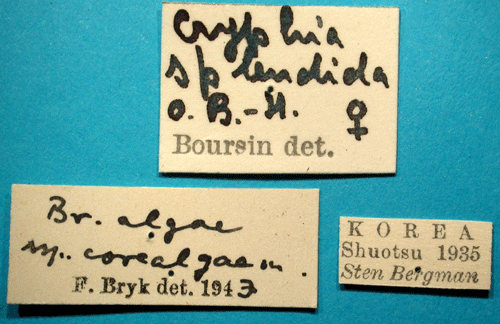 Cryphia
splendida
O. B.-H. ♀
Boursin det.
Br. algae
ssp. corealgae m.
F. Bryk det. 1943
KOREA
Shuotsu 1935
Sten Bergman